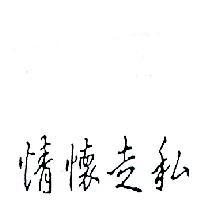 情懷走私